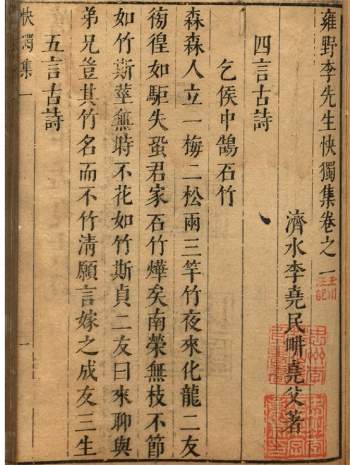 雍野李先生快獨集卷之一
濟水李堯民畊堯父著
四言古詩
乞侯中鵠石竹
森森人立一梅二松兩三竿竹夜來化龍二友
徬徨如驅失蛩君家石竹燁矣南榮無枝不節
如竹斯莖無時不花如竹斯貞二友曰來聊與
弟兄豈其竹名而不竹清願言嫁之成友三生
五言古詩
快獨集一
一